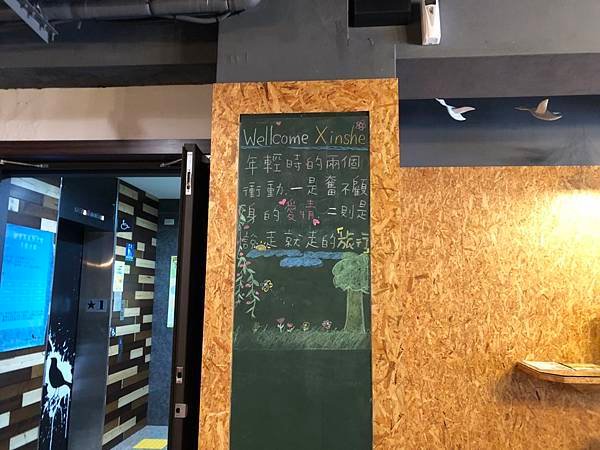 Wellcome Xinshe
年輕時的兩個
衝動.一是奮不顧
的愛情,二則是
說走就走的旅行
★1